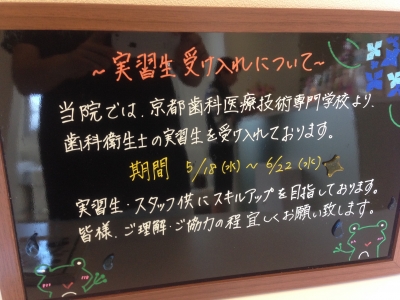 ～実習生受け入れについて～
当院では、京都歯科医療技術専門学校より、
歯科衛生士の実習生を受け入れております。
期間 5/18(水)～6/22(水)
実習生・スタッフ供にスキルアップを目指しております。
皆様、ご理解・ご協力の程宜しくお願い致します。